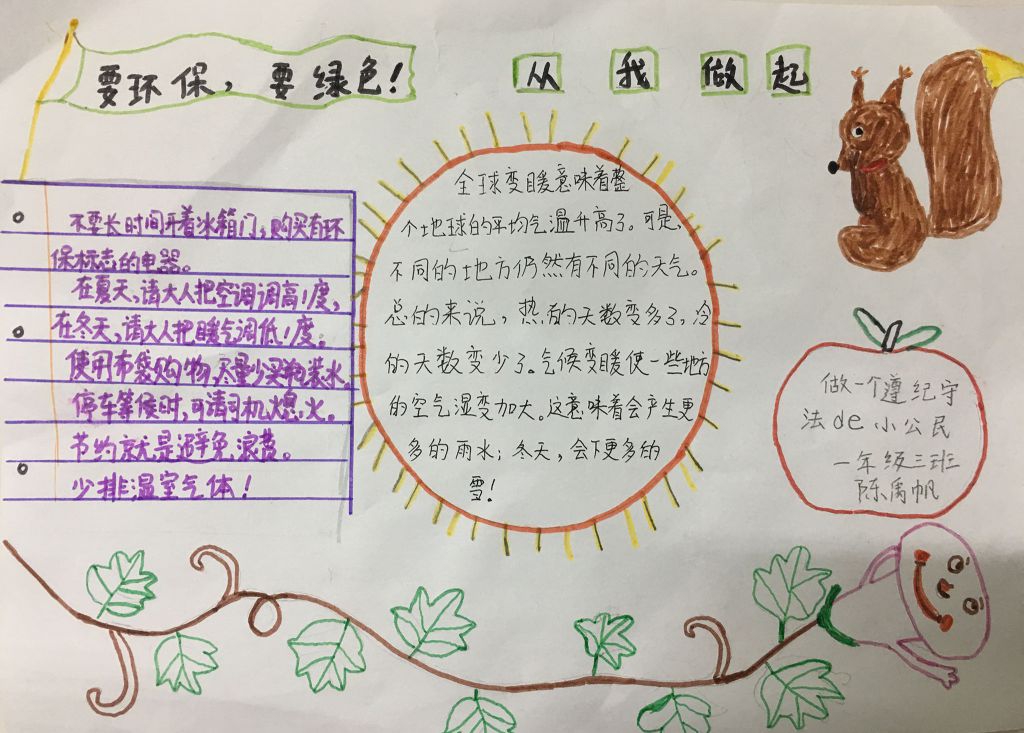 要环保，要绿色！
从我做起
不要长时间开着冰箱门，购买有环
保标志的电器。
在夏天，请大人把空调调高1度，
在冬天，请大人把暖气调低1度。
使用布袋购物，尽量少买瓶装水。
停车等候时，可请司机熄火。
节约就是避免浪费。
少排温室气体！
全球变暖意味着整
个地球的平均气温升高了。可是，
不同的地方仍然有不同的天气。
总的来说，热的天数变多了，冷
的天数变少了。气候变暖使一些地方
的空气湿变加大。这意味着会产生更
多的雨水；冬天，会下更多的
雪！
做一个遵纪守
法de小公民
一年级三班
陈禹帆